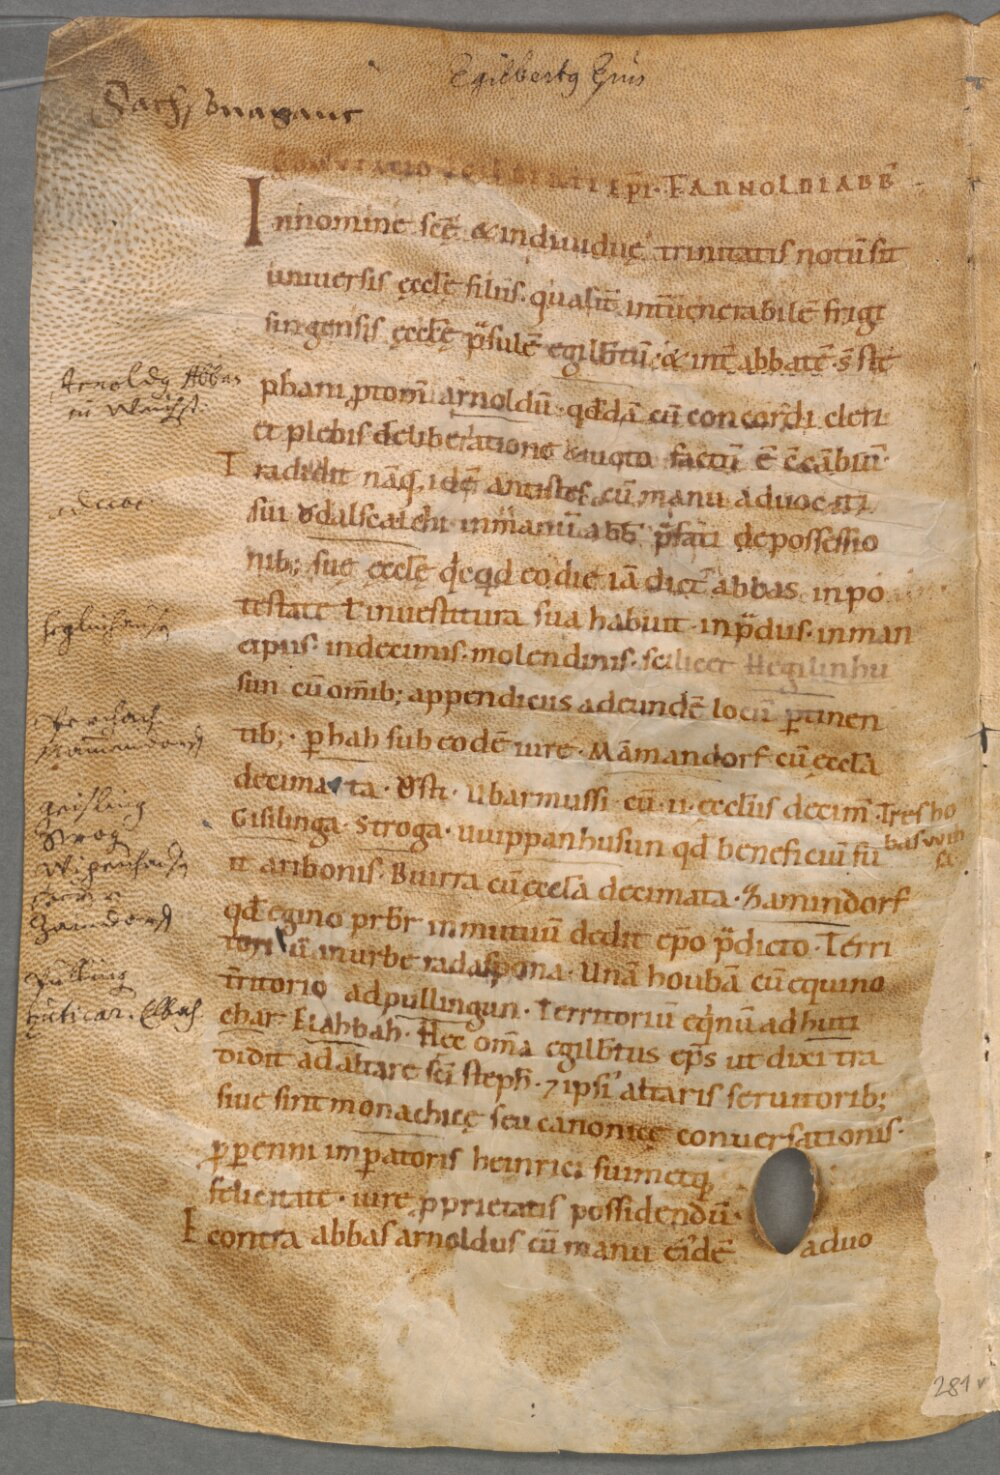 Egilbertꝯ Ep̄us
COMVTATIO EGILBERTI EP̄I · ⁊ ARNOLDI ABB̄
In nomine sc̄ę & indiuiduę trinitatis notū sit
uniuersis ęccłę filiis · qualit̄ int̄ uenerabilē frigi
singensis ęccłę p̄sulē egilb̄tū · & int̄ abbatē · s̄ ste
phani ꝓtom̄ arnoldū · qđdā cū concordi cleri
et plebis deliberatione & uoto factū ē c̄cābiū ·
Tradidit nāq; idē antistes cū manu aduocati
sui Ǒdalscalchi in manū abb̄ p̄fati de possessio
nib; suę ęccłę qđqđ eo die iā dict̄ abbas in po
testate ł inuestitura sua habuit · in p̄diis · in man
cipiis · in decimis · molendinis · scilicet Hegilinhu
sun cū om̄ib; appendiciis ad eundē locū ꝑtinen
tib; · ꝑhah sub eodē iure · Māmandorf cū ęccła
decimata · Ǒsti · Ubarmussi · cū · ii · ęccłiis decim̄ · Tres ho
bas
Gisilinga · Stroga · uuippanhusun qđ beneficiū fu
it aribonis · Biuirra cū ęccła decimata · Zamindorf
qđ egino pr̄br̄ in mutuū dedit ep̄o p̄dicto · Terri
toriū in urbe radaspona · Unā houbā cū equino
t̄ritorio ad pullingun · Territoriū eq̄nū ad huti
char Elahbah · Hec om̄a egilb̄tus ep̄s ut dixi tra
didit ad altare sc̄i steph̄ · ⁊ ipsi' altaris seruitorib;
siue sint monachicę seu canonicę conuersationis ·
ꝓ ꝑenni imꝑatoris heinrici suimetq;
felicitate · iure ꝓprietatis possidendū ·
E contra abbas arnoldus cū manu eiđē aduo
Arnoldꝯ Abbas
in Weichst:
aduoc
Heglnhausn
Perchach
Mamendorf
Geisling
Strog
Wipenhausn
Zamdorf
Pulling
huticar. Elbach
281 v